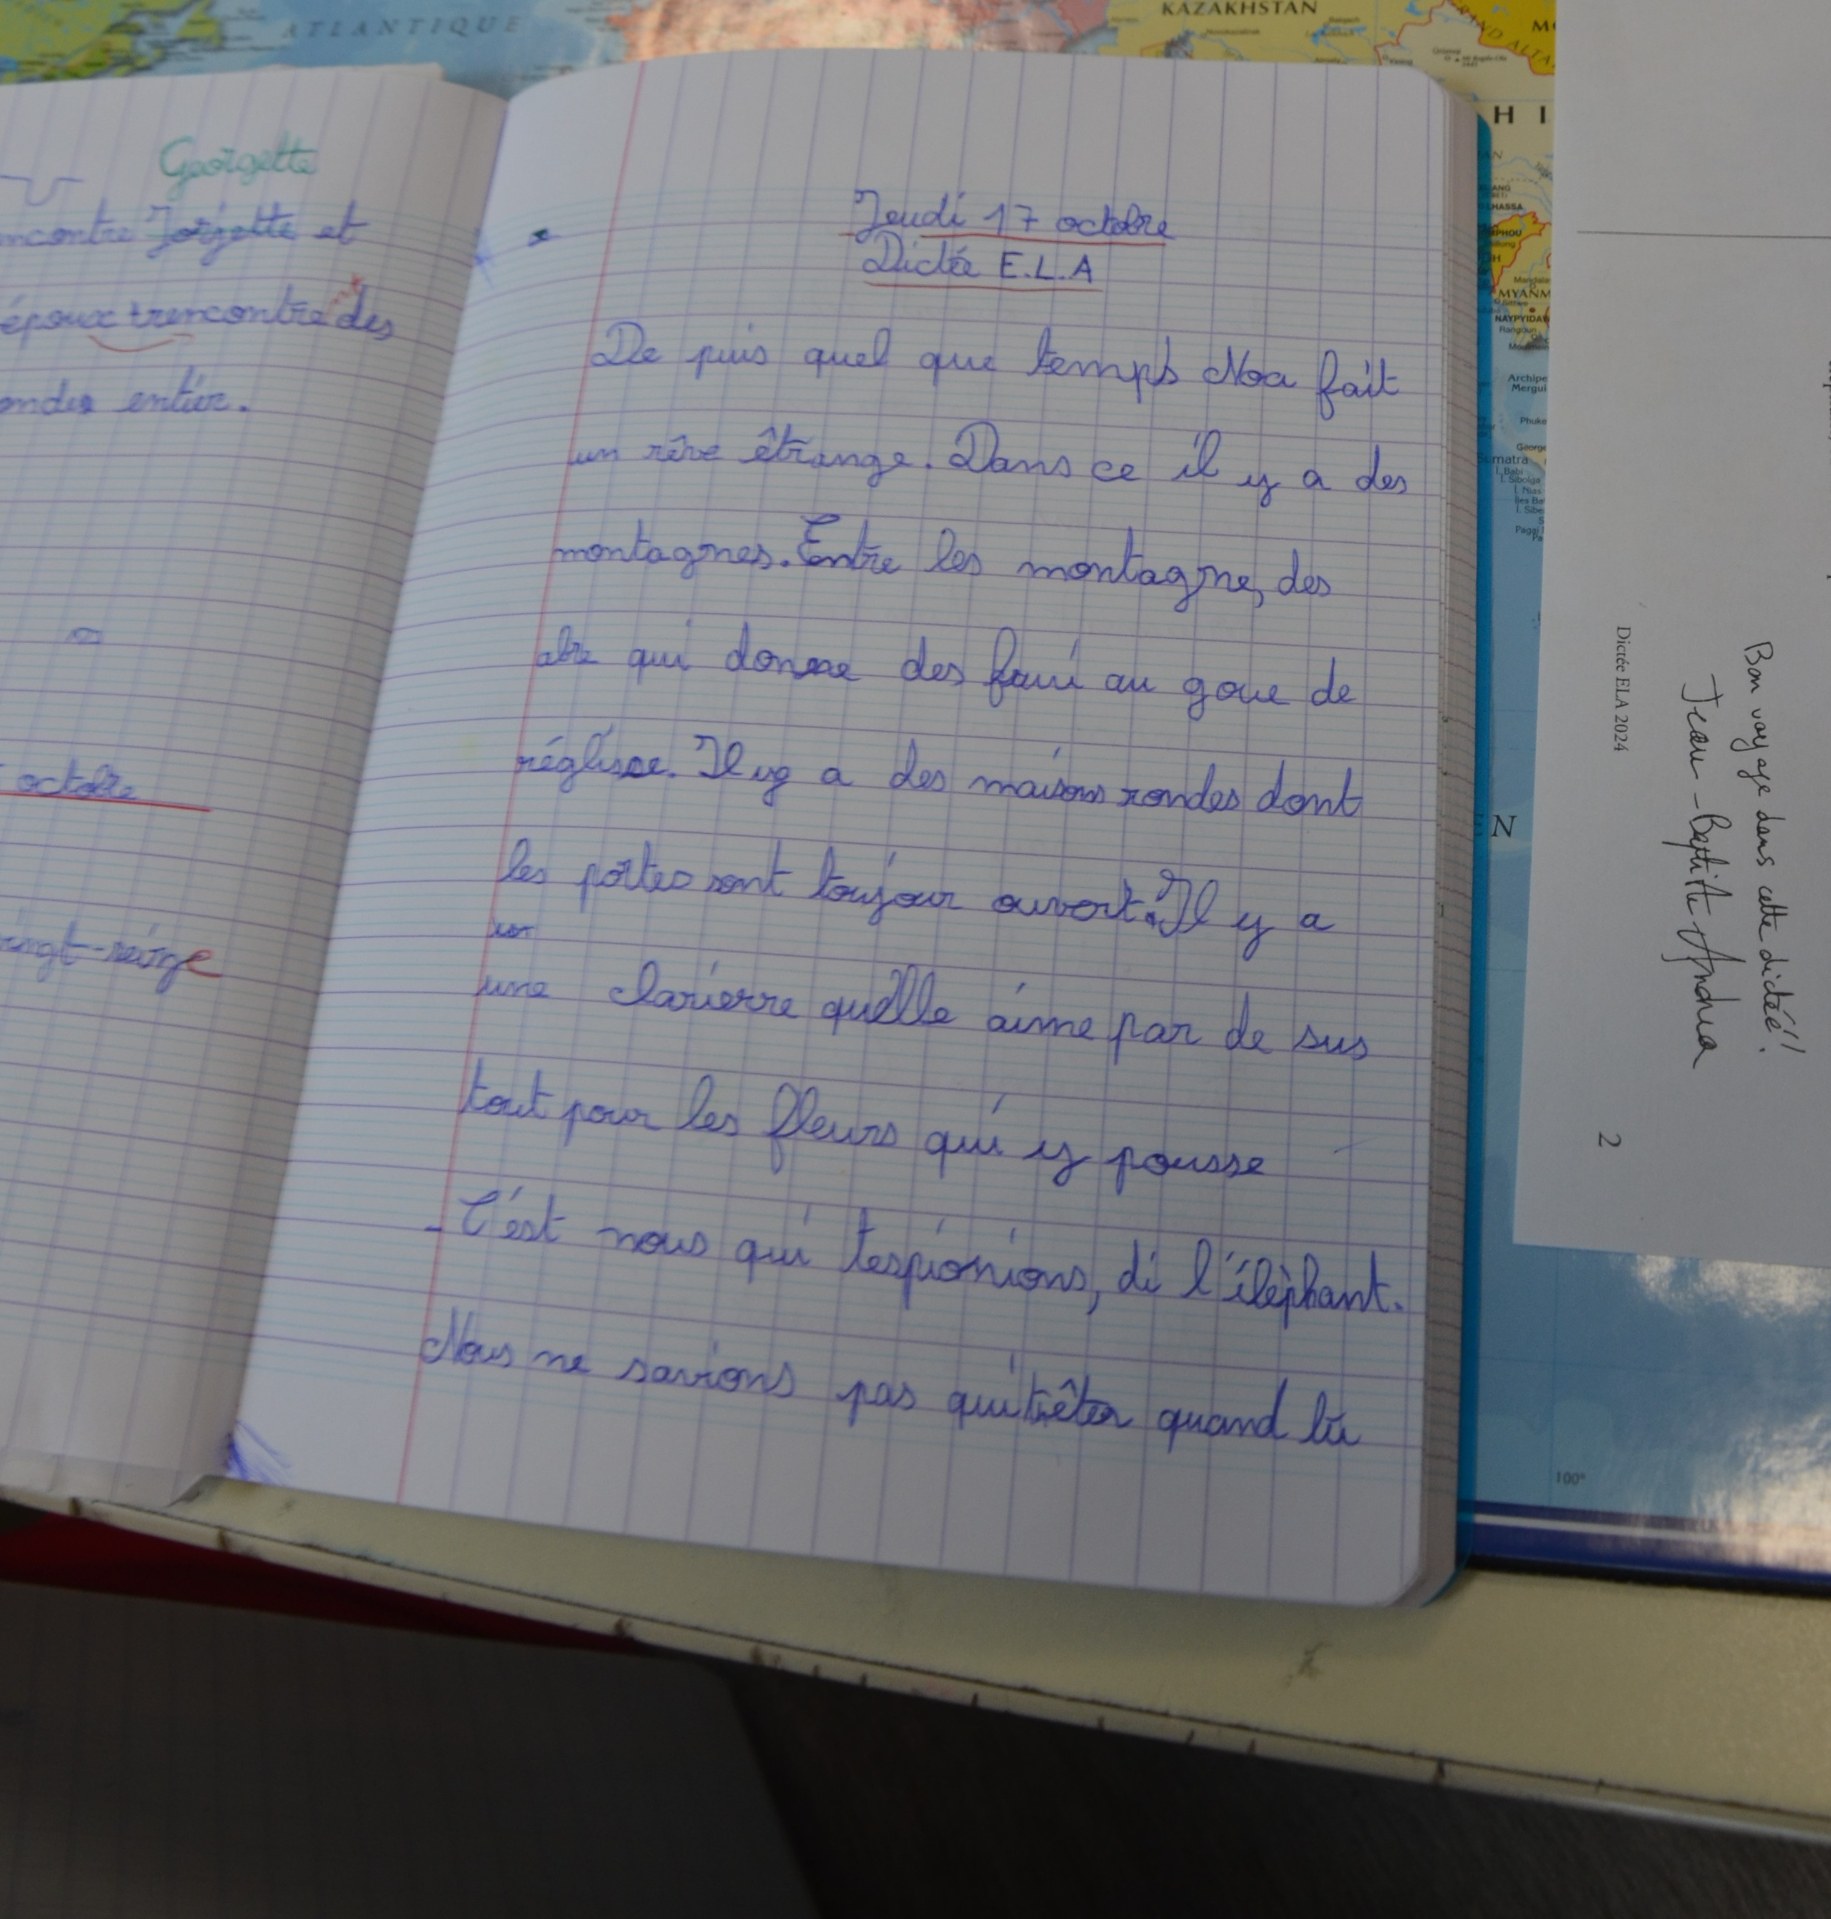 Georgette
ncontre Jorjette et
époux trencontre des
ondes entier.
octobre
ingt-neige
Jeudi 17 octobre
Dictée E.L.A
De puis quel que temps Noa fait
un rêve êtrange. Dans ce il y a des
montagnes. Entre les montagne, des
abre qui donne des frui au goue de
réglisse. Il y a des maisons rondes dont
les portes sont toujour ouvert. Il y a
une clarierre quelle aime par de sus
tout pour les fleurs qui y pousse
- C'est nous qui t'espionions, di l'élèphant.
Nous ne savions pas qui quand tu
Bon voyage dans cette dictée !
Jean-Baptiste Andrea
Dictée ELA 2024
2
ATLANTIQUE
KAZAKHSTAN
GRAND ALTA
H I
HASSA
MPHOU
MYANM
NAYPYIDAW
Rangoun
Archipe
Mergui
Phuke
George
matra
I. Babi
N
100°